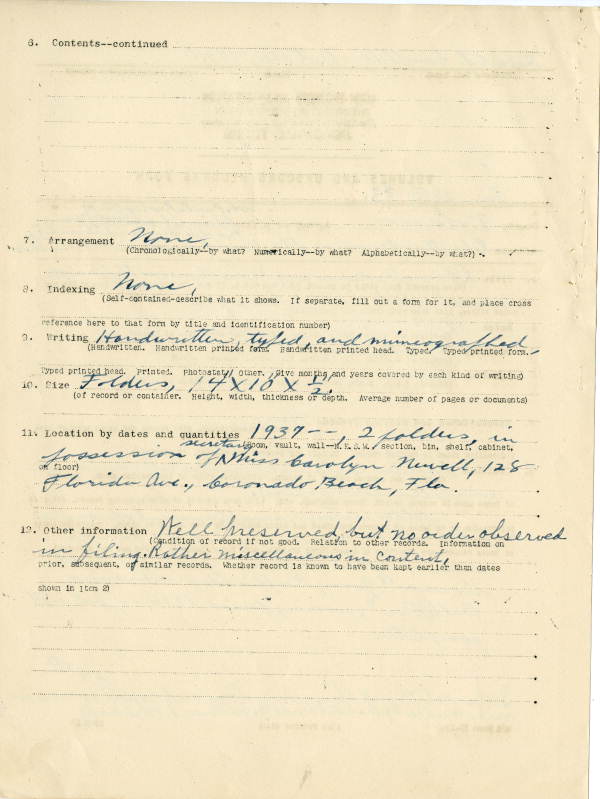 6. Contents--continued
7. Arrangement None,
(Chronologically--by what? Numerically--by what? Alphabetically--by what?)
8. Indexing None,
(Self-contained-describe what it shows. If separate, fill out a form for it, and place cross
reference here to that form by title and identification number)
9. Writing Handwritten, typed, and mimeographed
(Handwritten. Handwritten printed form. Handwritten printed head. Typed. Typed printed form.
Typed printed head. Printed. Photostat. Other. Give months and years covered by each kind of writing)
10. Size Folders, 14 x 10 x 1/2.
(of record or container. Height, width, thickness or depth. Average number of pages or documents)
11. Location by dates and quantities 1937--, 2 folders, in
(Room, vault, wall--N.E.S.W. section, bin, shelf, cabinet,
possession of secretary Miss Carolyn Newell, 128
or floor)
Florida Ave., Coronado Beach, Fla.
12. Other information Well preserved but no order observed
(Condition of record if not good. Relation to other records. Information on
in filing. Rather miscellaneous in content,
prior, subsequent, or similar records. Whether record is known to have been kept earlier than dates
shown in item 2)